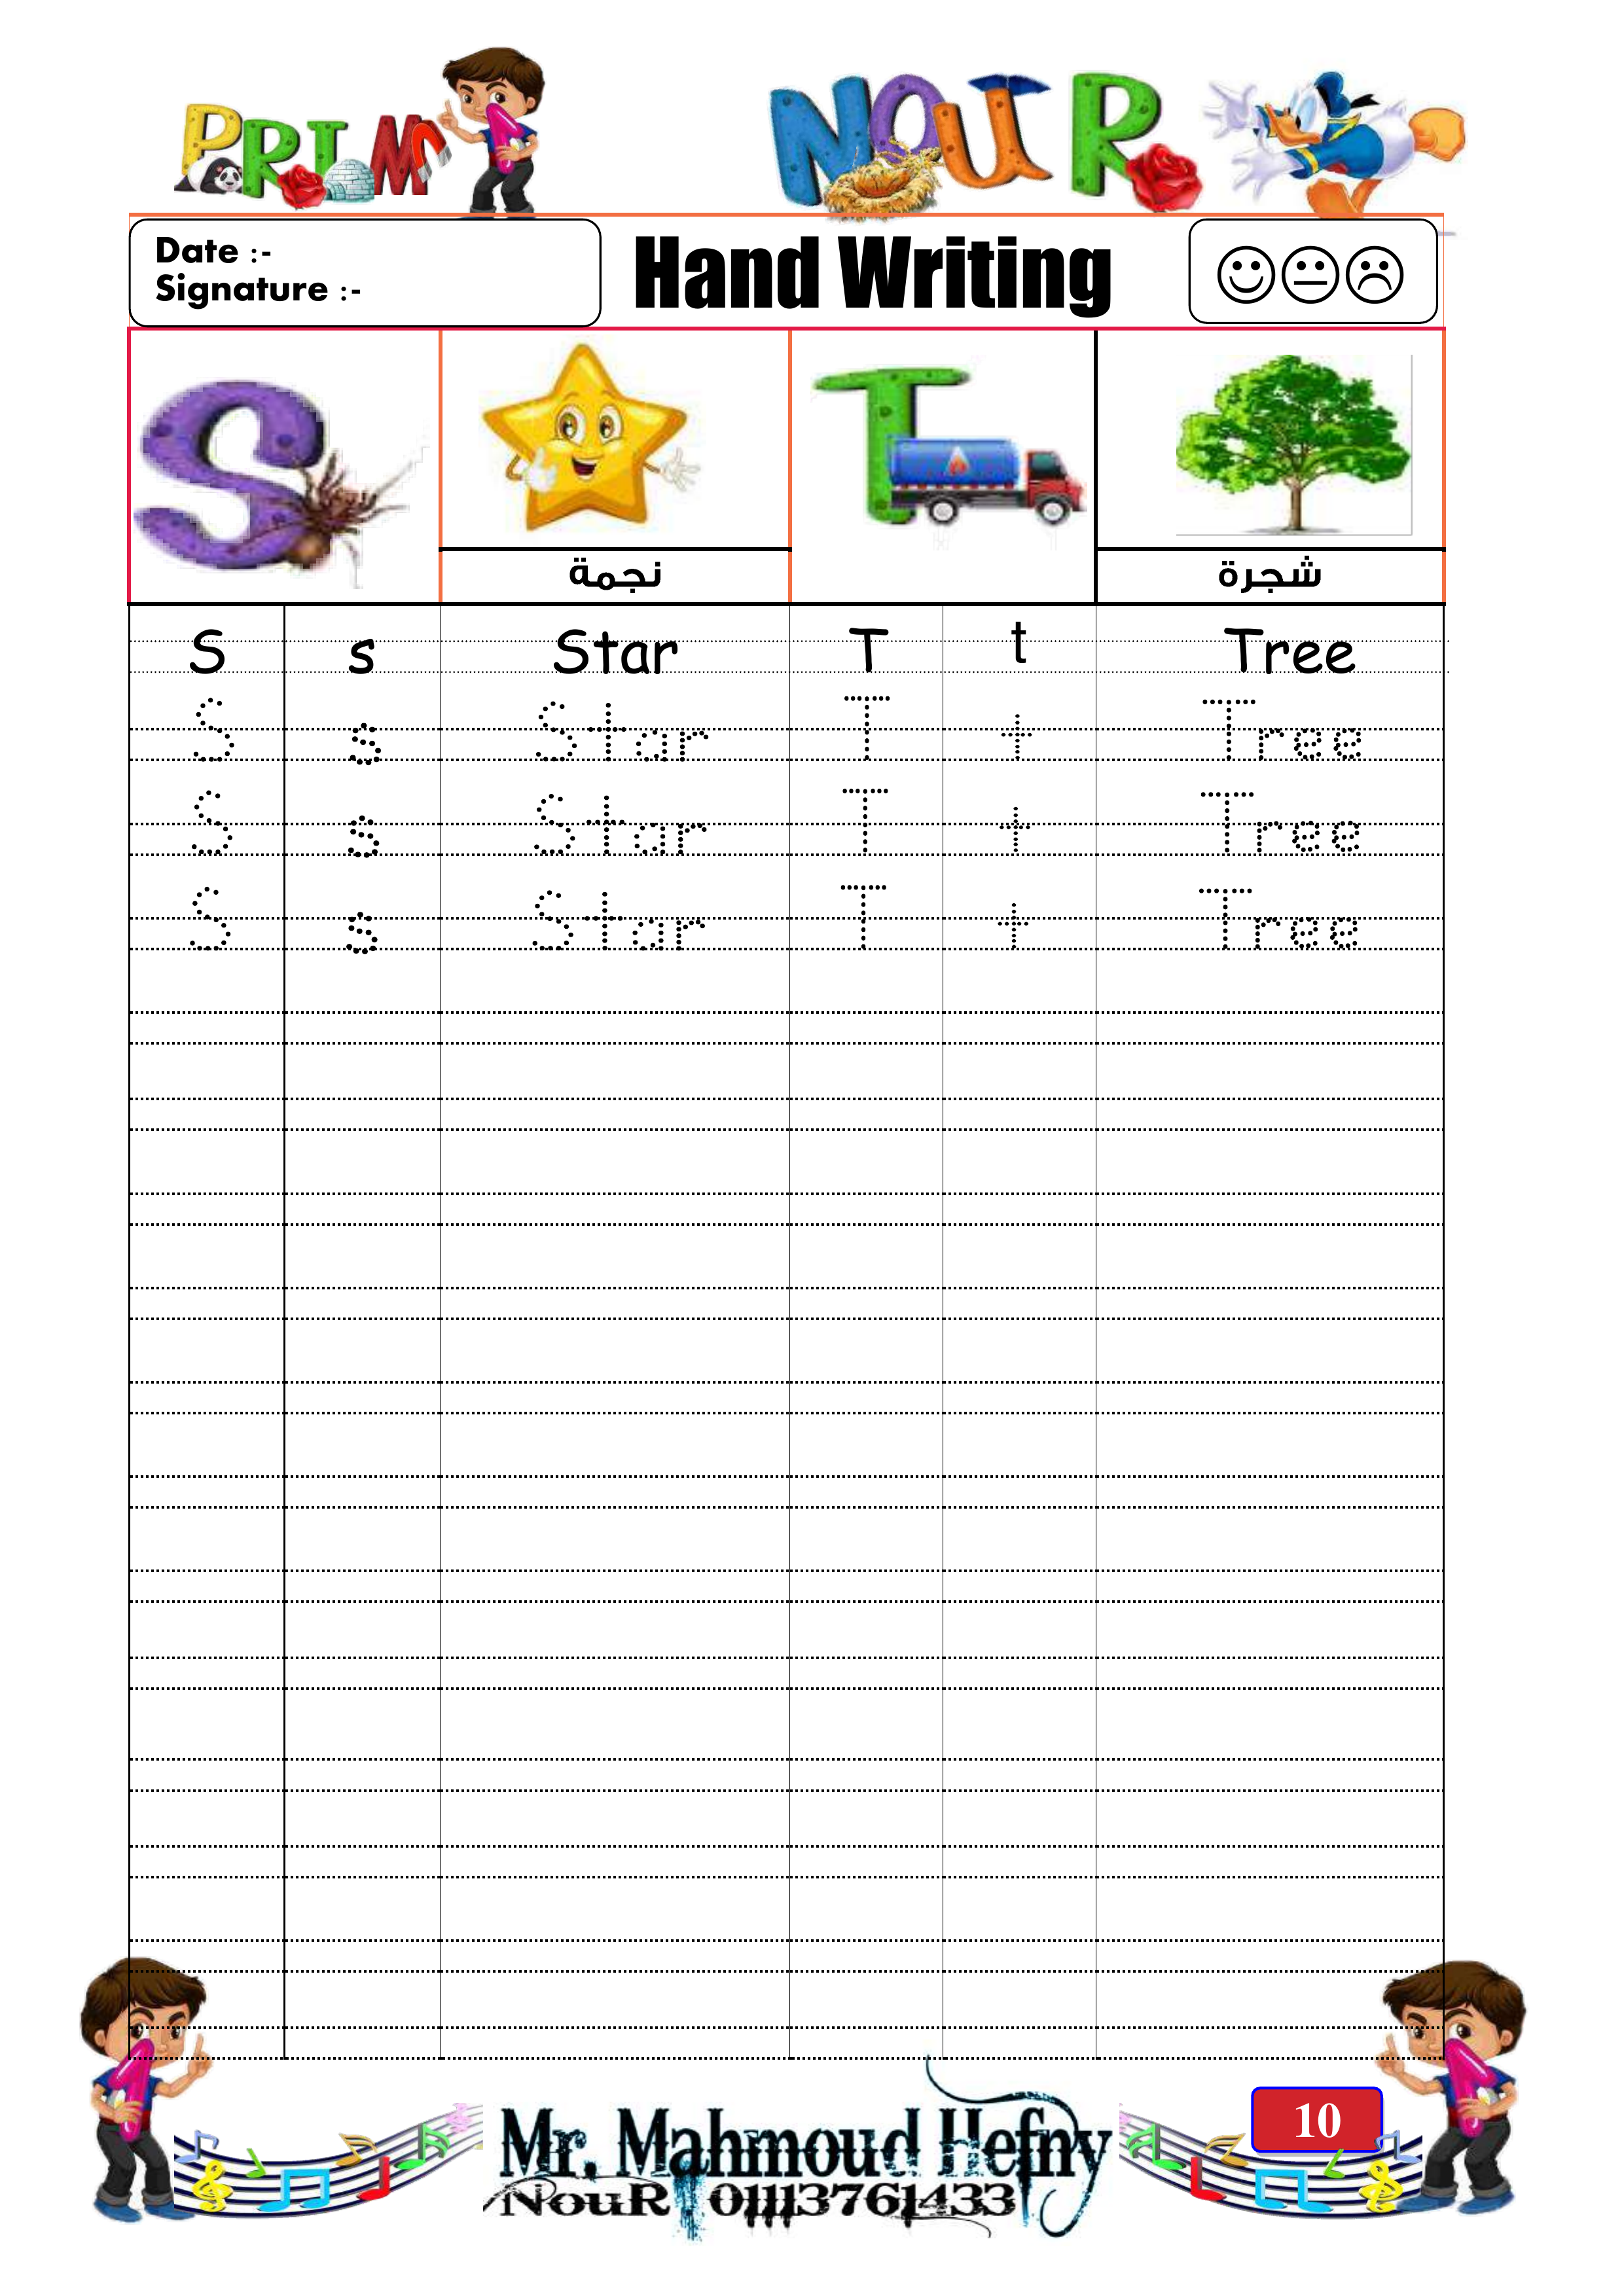 PRIM 1 NOUR
Date :-
Signature :-
Hand Writing
S T
نجمة شجرة
S s Star T t Tree
S s Star T t Tree
S s Star T t Tree
S s Star T t Tree
10
Mr. Mahmoud Hefny
NouR 01113761433